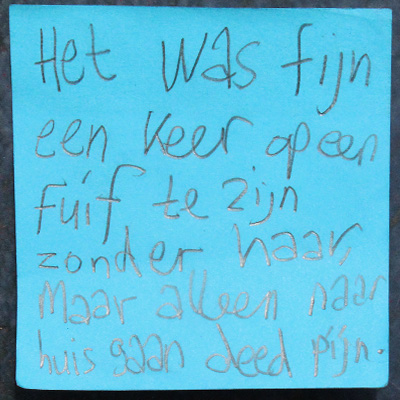 Het was fijn
een keer op een
fuif te zijn
zonder haar,
Maar alleen naar
huis gaan deed pijn.